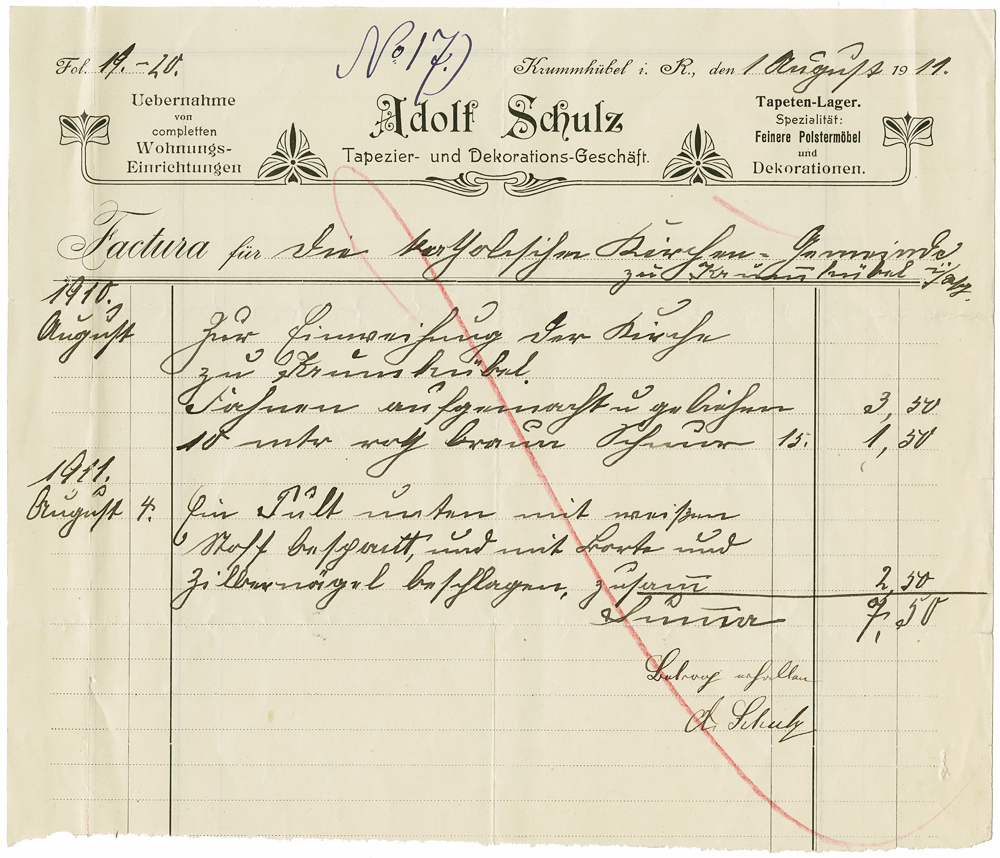 Fol. 19.-20.
No 17.)
Krummhübel i. R., den 1 August 1911.
Uebernahme
von
completten
Wohnungs-
Einrichtungen
Adolf Schulz
Tapezier- und Dekorations-Geschäft.
Tapeten-Lager.
Spezialität:
Feinere Polstermöbel
und
Dekorationen.
Factura für die katholischen Kirchen-Gemeinde
zu Krummhübel i/Rsg.
1910.
August Zur Einweihung der Kirche
zu Krumhübel.
Fahnen aufgemacht u geliehen 3,50
10 mtr roth braun Schnur 15. 1,50
1911.
August 4. Ein Pult unten mit weißen
Stoff bespannt, und mit Borte und
Zilbernägel beschlagen, zusam̄ 2,50
Sum̄a 7,50
Betrag erhalten
A. Schulz